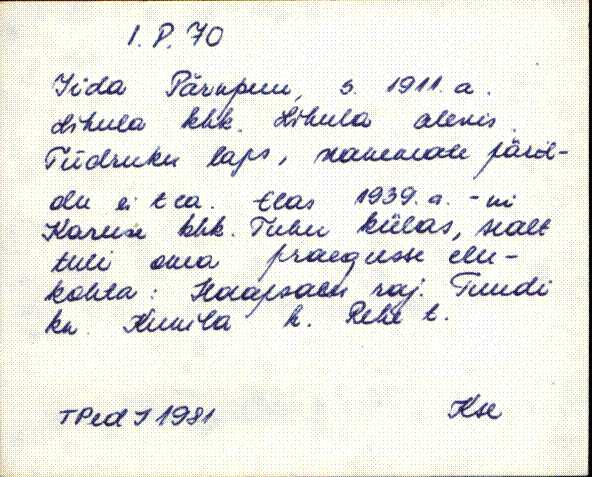 I. P. 70
Iida Pärnpuu, s. 1911. a.
Lihula khk. Lihula alevis.
Tüdruku laps, vanemate päritolu
du ei tea. Elas 1939. a. -ni
Karuse khk. Tuhu külas, sealt
tuli oma praegusse elu-
kohta: Haapsalu raj. Tuudi
kn. Kunila k. Rehe t.
TPedI 1981
Kse